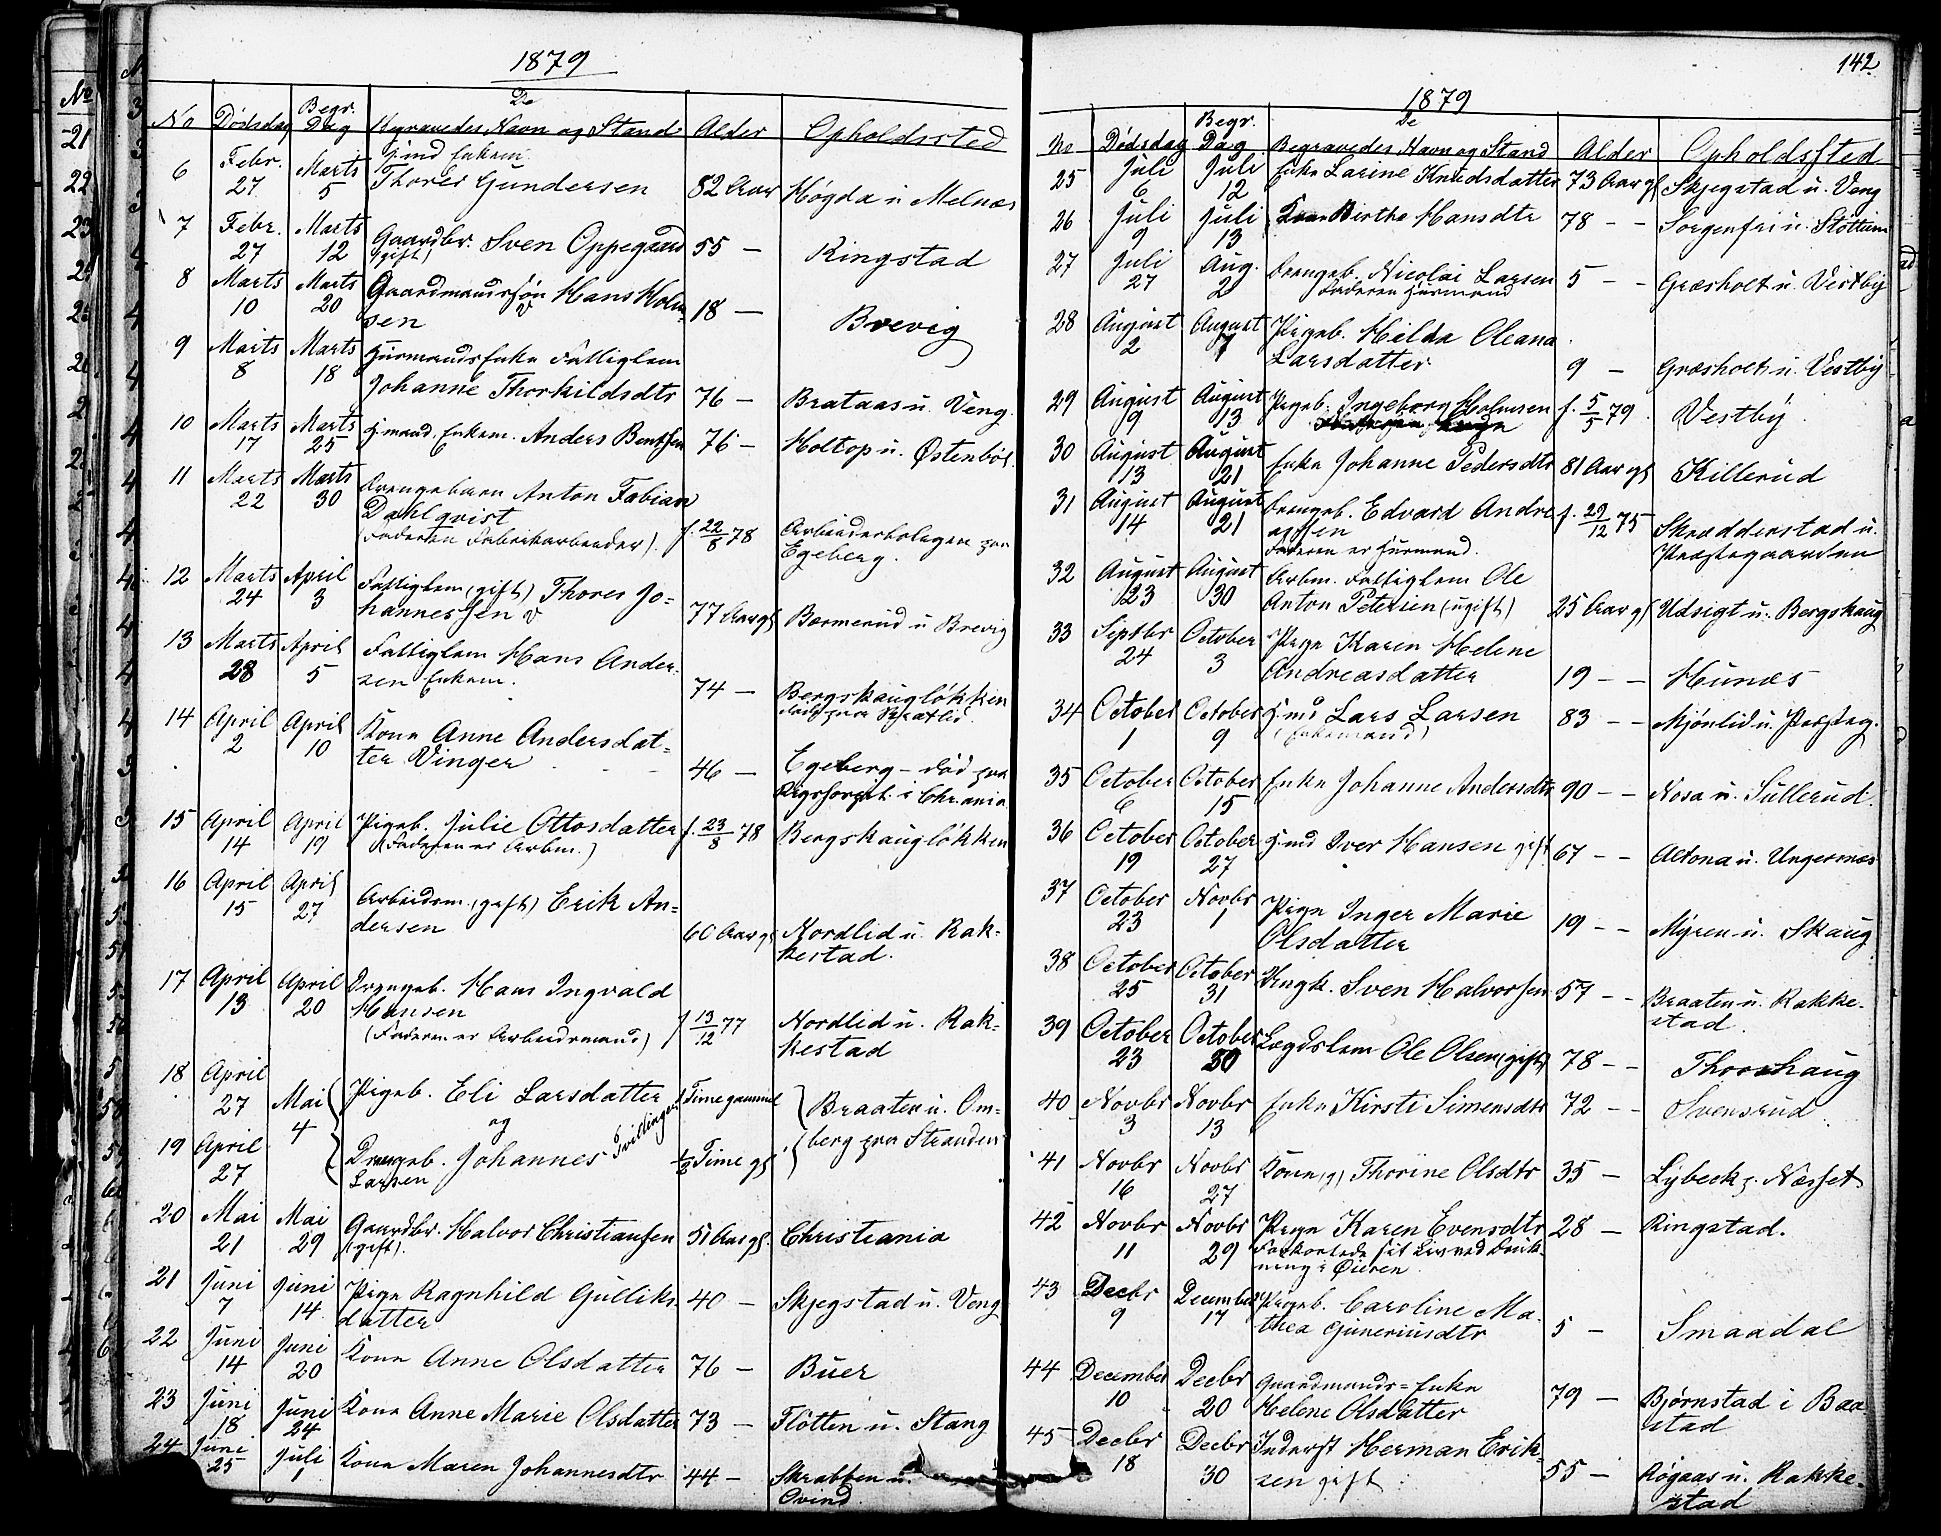 1879
No Dødsdag Begr. Dag De Begravedes Navn og Stand Alder Opholdssted
6 Febr. 27 Marts 5 Hmd Enkem.
Thores Gundersen 82 Aar Høgda u Melnæs
7 Febr. 27 Marts 12 Gaardbr. Sven Oppegaard 55 — Ringstad
(gift)
8 Marts 10 Marts 20 Gaardmandssøn Hans Holm-
sen 18 — Brevig
9 Marts 8 Marts 18 Husmands Enke Fattiglem
Johanne Thorkildsdtr 76 — Brataas u. Veng
10 Marts 17 Marts 25 Hmand Enkem. Anders Bentsen 76 — Holtop u. Østenbøl
11 Marts 22 Marts 30 Drengebarn Anton Fabian
Dahlqvist
(Faderen Fabrikarbeider). f. 22/8 78 Arbeiderboligen paa
Egeberg.
12 Marts 24 April 3 Fattiglem (gift) Thores Jo=
hannessen 77 Aar gl Bærmerud u Brevig
13 Marts 28 April 5 Fattiglem Hans Ander-
sen Enkem. 74 — Bergskaugløkken
14 April 2 April 10 Kone Anne Andersdat=
ter Vinger 46 — Egeberg — død paa
Rigshospit. i Chrania
15 April 14 April 19 Pigeb. Julie Ottosdatter f. 23/8 78 Bergskaugløkken
(Faderen er Arbm.)
16 April 15 April 27 Arbeidsm. (gift) Erik An=
dersen 60 Aar gl Nordlid u. Rak-
kestad.
17 April 13 April 20 Drengeb. Hans Ingvald
Hansen
(Faderen er Arbeidsmand) f 13/12 77 Nordlid u. Rak-
kestad
18 April 27 Mai 4 Pigeb. Eli Larsdatter 1 Time gammel Braaten u. Om=
og Tvillinger berg paa Stranden
19 April 27 Drengeb. Johannes
Larsen ½ Time gl
20 Mai 21 Mai 29 Gaardbr. Halvor Christiansen 51 Aar gl. Christiania
(gift).
21 Juni 7 Juni 14 Pige Ragnhild Gulliks-
datter 40 — Skjegstad u. Veng
22 Juni 14 Juni 20 Kone Anne Olsdatter 76 — Buer
23 Juni 18 Juni 24 Kone Anne Marie Olsdatter 73 — Fløtten u. Stang
24 Juni 25 Juli 1 Kone Maren Johannesdtr 44 — Skrabben u.
Ovind
142
1879
No Dødsdag Begr. Dag De Begravedes Navn og Stand Alder Opholdssted
25 Juli 6 Juli 12 Enke Larine Knudsdatter 73 Aar gl Skjegstad u. Veng
26 Juli 9 Juli 13 Kone Birthe Hansdtr 78 — — Sorgenfri u. Støttum
27 Juli 27 Aug. 2 Drengeb. Nicolai Larsen 5 — — Græsholt u. Vestby
Faderen Husmand
28 August 2 August 7 Pigeb. Hilda Oleana
Larsdatter 9 — Græsholt u. Vestby
29 August 9 August 13 Pigeb. Ingeborg Halvorsen f. 5/5 79. Vestby
30 August 13 August 21 Enke Johanne Pedersdtr 81 Aar gl Killerud
31 August 14 August 21 Drengeb. Edvard Andre
assen f. 29/12 75 Skrædderstad u.
Faderen er Husmand. Præstegaarden
32 August 23 August 30 Arbm. Fattiglem Ole
Anton Petersen (ugift) 25 Aar gl Udsigt u. Bergskaug
33 Septbr 24 October 3 Pige Karen Helene
Andreasdatter 19 — — Hunæs
34 October 1 October 9 Hmd Lars Larsen 83 — — Mjönlid u. Præsteg.
(Enkemand)
35 October 6 October 15 Enke Johanne Andersdtr 90 — — Nosa u. Sullerud.
36 October 19 October 27 Hmd Iver Hansen gift 67 — — Altona u. Ungersnæs
37 October 23 Novbr 1 Pige Inger Marie
Olsdatter 19 — — Myren u. Skaug
38 October 25 October 31 Ungk. Sven Halvorsen 57 — — Braaten u. Rakke-
stad.
39 October 23 October 30 Lægdslem Ole Olsen (gift) 78 — — Thorshaug
40 Novbr 3 Novbr 13 Enke Kirsti Simensdtr 72 — — Svensrud
41 Novbr 16 Novbr 27 Kone (g) Thorine Olsdtr 35 — Lybeck p. Næsset
42 Novbr 11 Novbr 29 Pige Karen Evensdtr 28 — Ringstad.
Forkortede sit Liv ved Druk-
ning i Øieren
43 Decbr 9 December 17 Pigeb. Caroline Ma-
thea Guneriusdtr 5 — Smaadal
44 December 10 Decbr 20 Gaardmands=Enke
Helene Olsdatter 79 — Bjørnstad i Baa-
stad
45 Decbr 18 Decbr 30 Inderst Herman Erik-
sen gift 55 — Røgaas u. Rakke-
stad